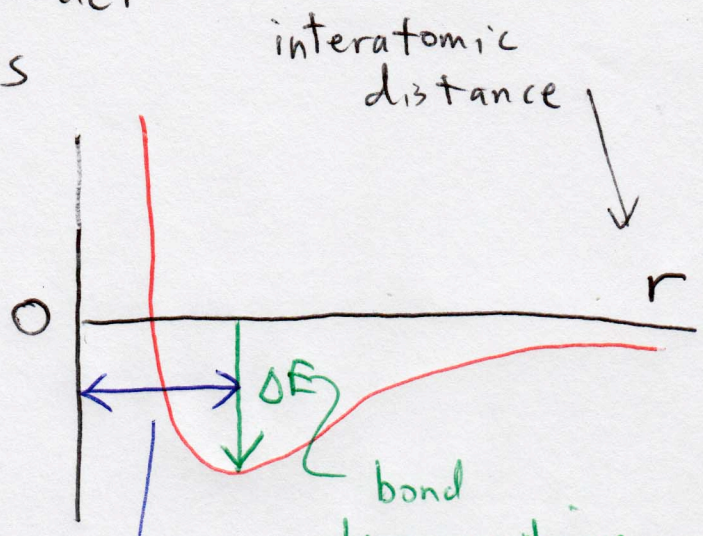 s
interatomic
distance
r
O
ΔE
bond